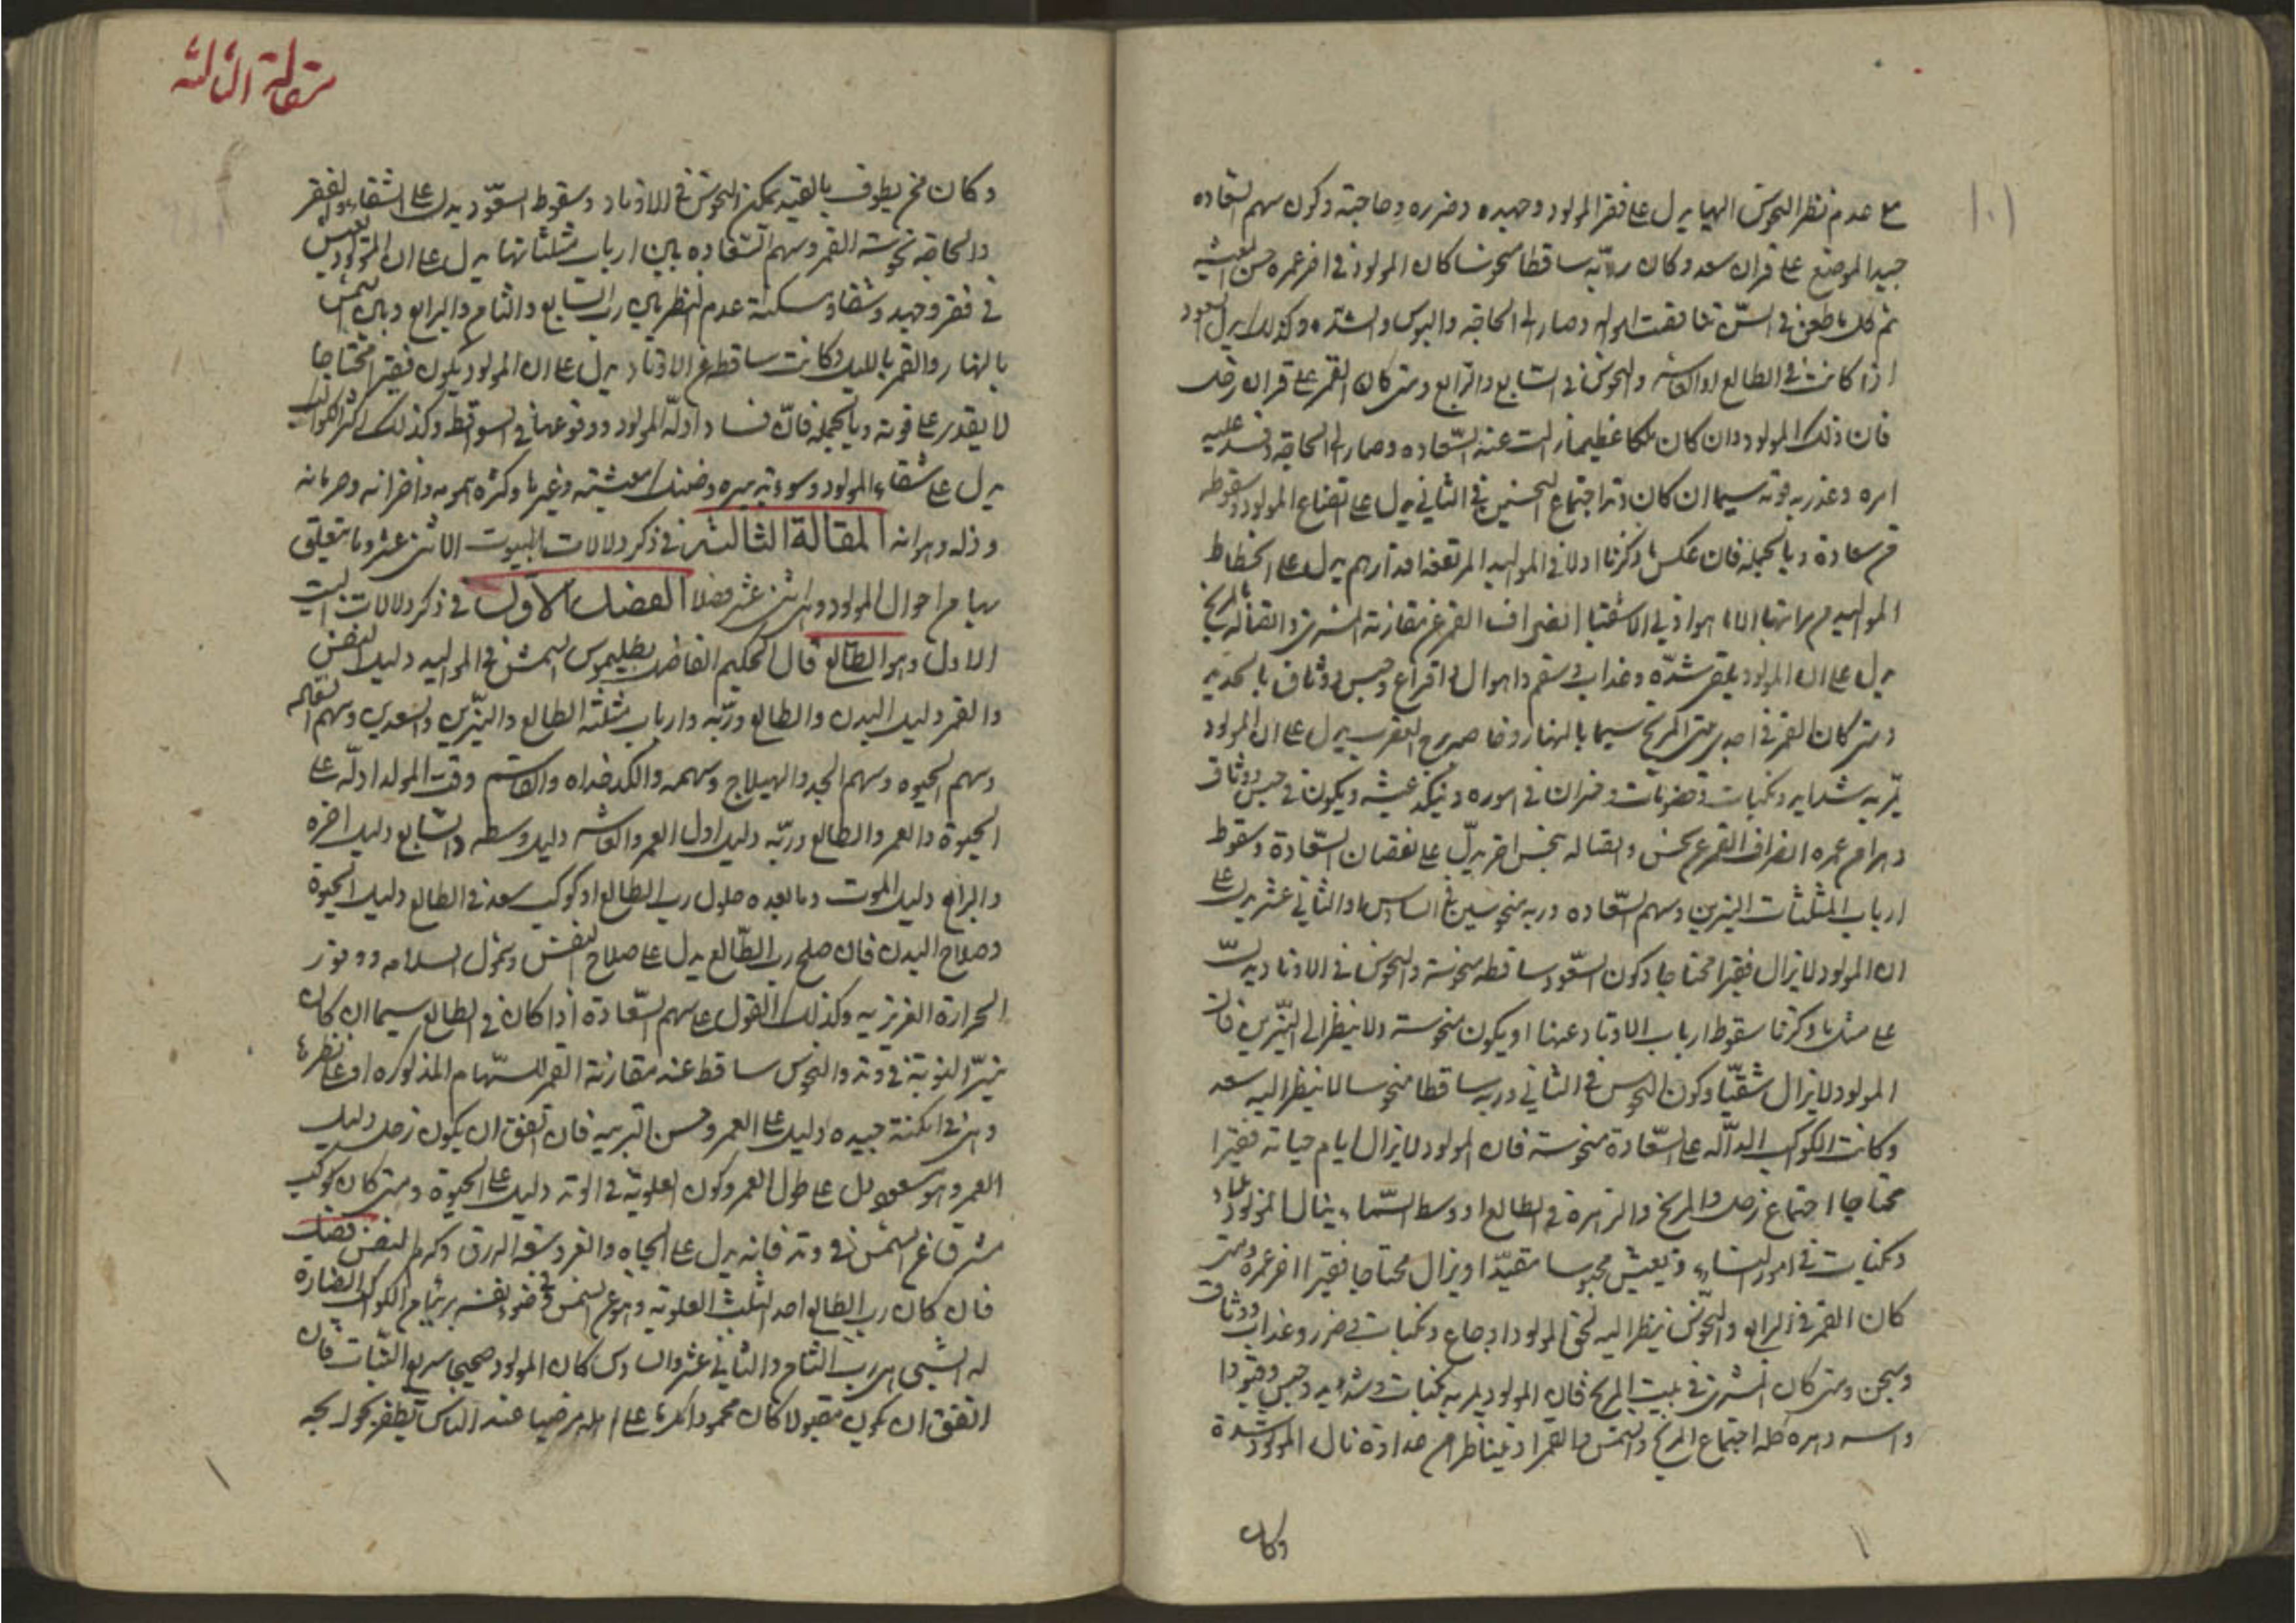 ١٠١
مع عدم نظر النحوس اليها يدل على فقر المولود وجهده وضرره وحاجته وكون سهم السعاده
جيد الموضع على قران سعد وكان ربه ساقطا منحوسا كان المولود في اخر عمره حسن المعيشه
ثم كل ما طعن في السن تناقصت احواله وصار الى الحاجه والبوس والشده وكذلك يدل السعود
اذا كانت في الطالع او العاشر والنحوس في السابع والرابع ومتى كان القمر على قران زحل
فان ذلك المولود وان كان ملكا عظيما زالت عنه السعاده وصار الى الحاجه وفسد عليه
امره وعذر به قوته سيما ان كان وتد اجتماع النحسين في الثاني يدل على اتضاع المولود وسقوطه
من سعادة وبالجمله فان عكس ما ذكرنا اولا في المواليد المرتفعه اقدارهم يدل على انحطاط
المواليد من مراتبها انصراف القمر عن مقارنة المشتري واتصاله بالمريخ
يدل على ان المولود يلقى شدة وعذاب في سقم واهوال وحبس في وثاق بالحديد
ومتى كان القمر في احد بيتي المريخ سيما بالنهار وخاصه برج العقرب يدل على ان المولود
يمر به شدايد ونكبات وخسران في اموره ونيكد عيشه ويكون في حبس ووثاق
وهرام عمره انصراف القمر عن نحس واتصاله بنحس اخر يدل على نقصان السعادة وسقوط
ارباب المثلثات النيرين وسهم السعاده وربه منحوسين في السادس او الثاني عشر يدل على
ان المولود لا يزال فقيرا محتاجا وكون السعود ساقطه منحوسة والنحوس في الاوتاد يدل
على مثل ما ذكرنا سقوط ارباب الاوتاد عنها او يكون منحوسة ولا ينظر الى النيرين فان
المولود لا يزال شقيا وكون النحوس في الثاني وربه ساقطا منحوسا لا ينظر اليه سعد
وكانت الكواكب الداله على السعادة منحوسة فان المولود لا يزال ايام حياته فقيرا
محتاجا اجتماع زحل والمريخ والزهرة في الطالع او وسط السماء ينال المولود
ونكبات في امور النساء ويعيش محبوسا مقيدا ويزال محتاجا فقيرا اخر عمره ومتى
كان القمر في الرابع والنحوس ينظر اليه لحق المولود اوجاع ونكبات في ضرر وعذاب ووثاق
وسجن ومتى كان المشتري في بيت المريخ فان المولود يمر به نكبات وشدايد وحبس وقيودا
واسر وهره كله اجتماع المريخ والشمس والقمر او تيناظرا من عداوة نال المولود شدة
وكان
مقالة الثالثه
وكان من يطوف بالقيد تمكن النحوس في الاوتاد وسقوط السعود يدل على الشقاء والفقر
والحاجه نحوسة القمر وسهم السعاده بين ارباب مثلثاتها يدل على ان المولود يعيش
في فقر وجهد وشقاء ومسكنة عدم النظر بين رب السابع والثامن والرابع وبين الشمس
بالنهار والقمر بالليل وكانت ساقطه عن الاوتاد يدل على ان المولود يكون فقيرا محتاجا
لا يقدر على قوته وبالجمله فان فساد ادلة المولود ووقوعها في السواقط وكذلك اكثر الكواكب
يدل على شقاء المولود وسوء تدبيره وضنك معيشته وغيرها وكثره همومه واحزانه وحرمانه
وذله وهوانه المقالة الثالثه في ذكر دلالات البيوت الاثنى عشر وما يتعلق
بها من احوال المولود وهى اثنى عشر فصلا الفصل الاول في ذكر دلالات البيت
الاول وهو الطالع قال الحكيم الفاضل بطليموس الشمس في المواليد دليل النفس
والقمر دليل البدن والطالع وربه وارباب مثلثة الطالع والنيرين والسعدين وسهم السعاله
وسهم الحيوه وسهم الجد والهيلاج وسهمه والكدخداه والقاسم وقت المولد ادلة على
الحيوة والعمر والطالع وربه دليل اول العمر والعاشر دليل وسطه والسابع دليل اخره
والرابع دليل الموت وما بعده حلول رب الطالع او كوكب سعد في الطالع دليل الحيوة
وصلاح البدن فان صلح رب الطالع يدل على صلاح النفس وشمول السلامه ووفور
الحرارة الغريزيه وكذلك القول على سهم السعادة اذا كان في الطالع سيما ان كان
نير النوبة في وتد والنحوس ساقط عند مقارنة القمر للسهام المذكوره او على نظرها
وهى في امكنة جيده دليل على العمر وحسن التربيه فان اتفق ان يكون زحل دليل
العمر وهو مسعود دل على طول العمر وكون العلوية في الوتد دليل على الحيوة ومتى كان كوكب
مشرقا عن الشمس في وتد فانه يدل على الجاه والفر وسعة الرزق وكرم النفس فصل
فان كان رب الطالع احد الثلث العلويه وهو عن الشمس في ضو نفسه بريئا من الكواكب الضارة
له اشبى هى رب الثامن والثاني عشر والسادس كان المولود صحيحا سريع الثبات فان
اتفق ان يكون مقبولا كان محمودا مكرما على اهله مرضيا عند الناس يظفر بحوائجه